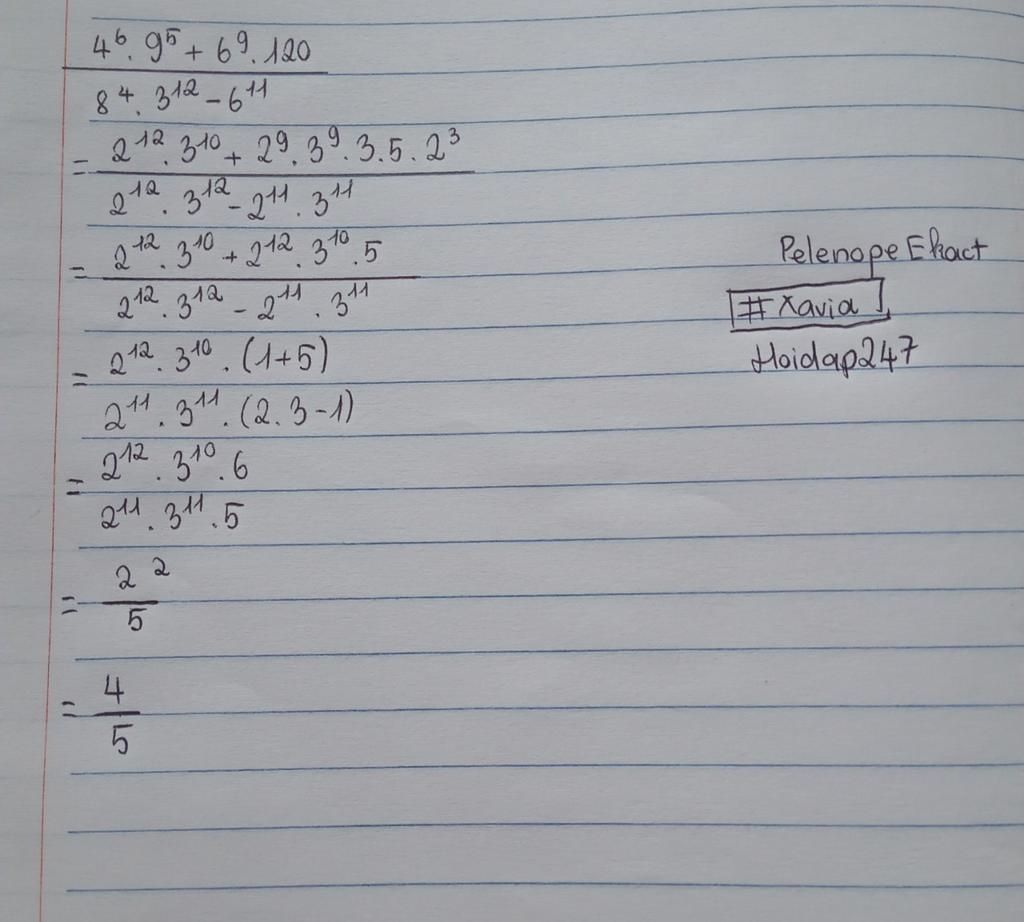 4⁶. 9⁵ + 6⁹. 120
8⁴. 3¹² - 6¹¹
= 2¹². 3¹⁰ + 2⁹. 3⁹. 3. 5. 2³
2¹². 3¹² - 2¹¹. 3¹¹
= 2¹². 3¹⁰ + 2¹². 3¹⁰. 5
2¹². 3¹² - 2¹¹. 3¹¹
= 2¹². 3¹⁰. (1+5)
2¹¹. 3¹¹. (2. 3 - 1)
= 2¹². 3¹⁰. 6
2¹¹. 3¹¹. 5
= 2²
5
= 4
5
Pelenope Ekact
# Xavia
Hoidap247